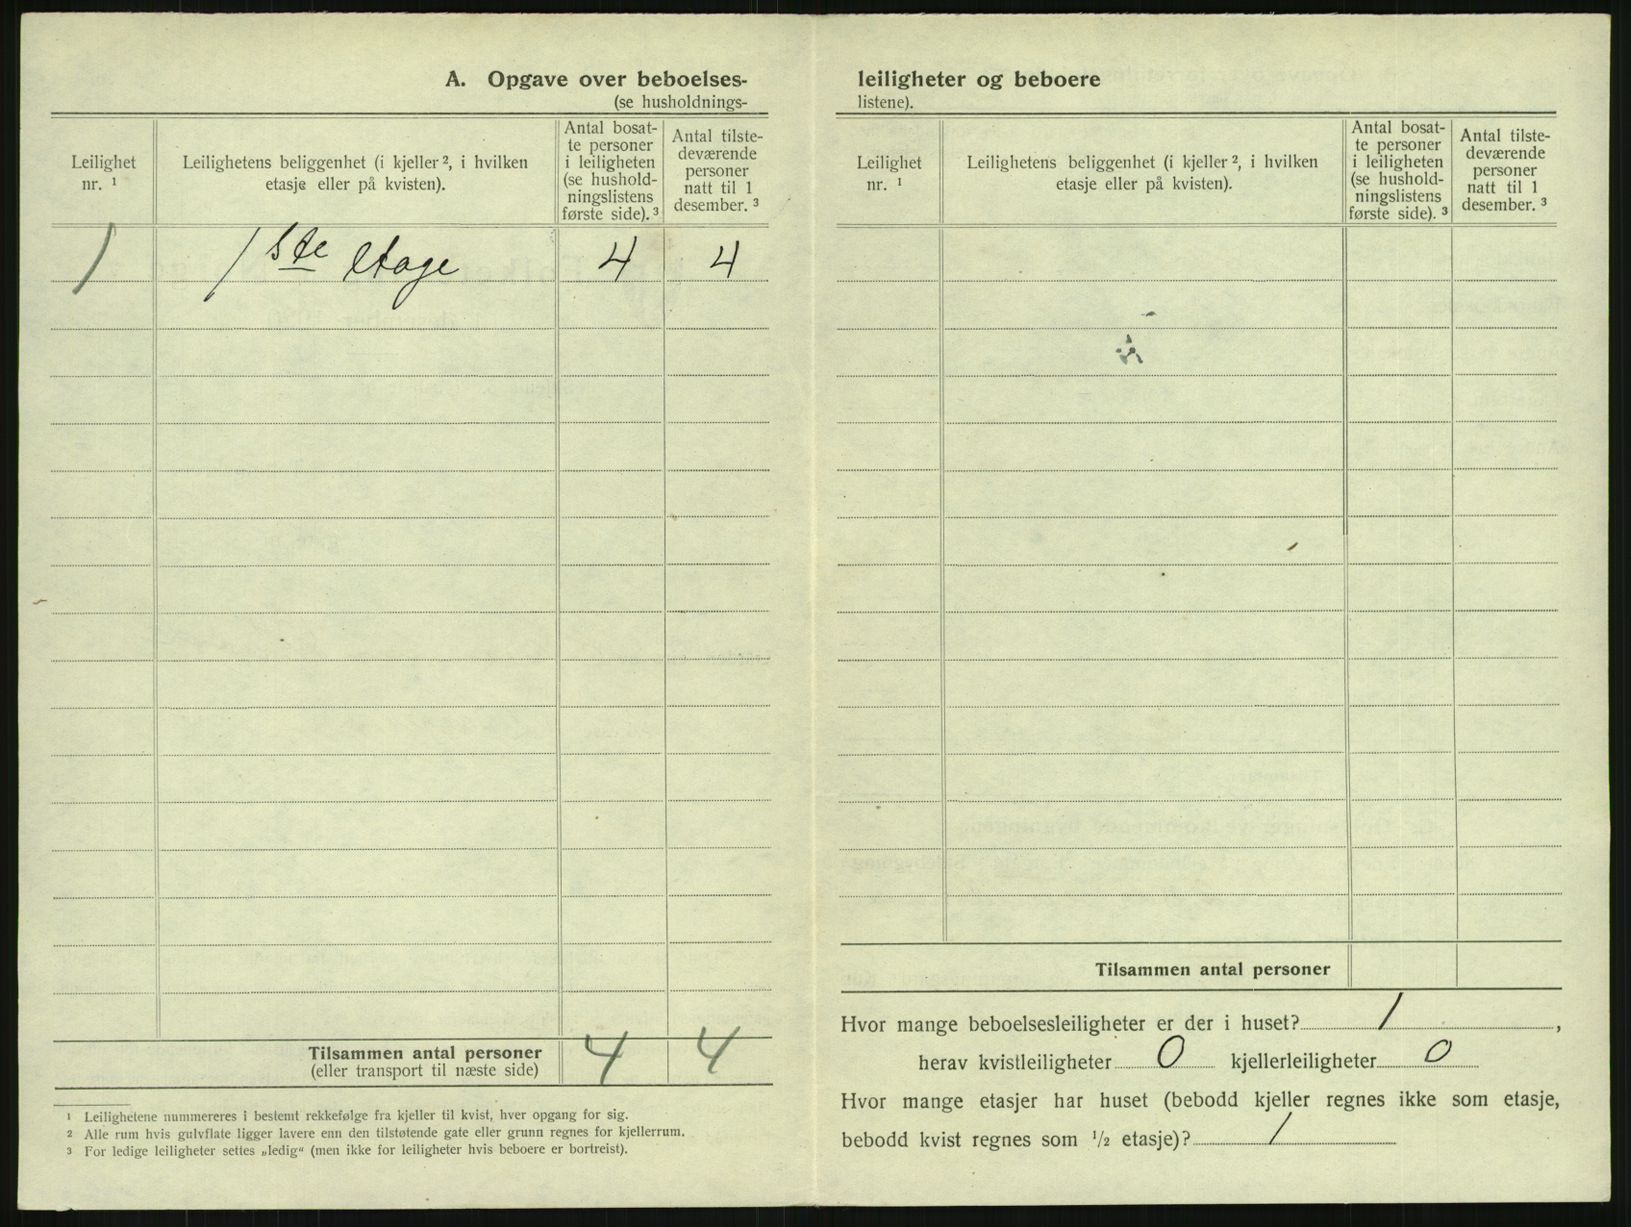 A. Opgave over beboelses-
(se husholdnings-
Leilighet nr. ¹
Leilighetens beliggenhet (i kjeller ², i hvilken etasje eller på kvisten).
Antal bosat-
te personer
i leiligheten
(se hushold-
ningslistens
første side). ³
Antal tilste-
deværende
personer
natt til 1
desember. ³
1 1 ste etage 4 4
Tilsammen antal personer 4 4
(eller transport til næste side)
¹ Leilighetene nummereres i bestemt rekkefølge fra kjeller til kvist, hver opgang for sig.
² Alle rum hvis gulvflate ligger lavere enn den tilstøtende gate eller grunn regnes for kjellerrum.
³ For ledige leiligheter settes „ledig“ (men ikke for leiligheter hvis beboere er bortreist).
leiligheter og beboere
listene).
Leilighet nr. ¹
Leilighetens beliggenhet (i kjeller ², i hvilken etasje eller på kvisten).
Antal bosat-
te personer
i leiligheten
(se hushold-
ningslistens
første side). ³
Antal tilste-
deværende
personer
natt til 1
desember. ³
Tilsammen antal personer
Hvor mange beboelsesleiligheter er der i huset? 1,
herav kvistleiligheter 0 kjellerleiligheter 0
Hvor mange etasjer har huset (bebodd kjeller regnes ikke som etasje,
bebodd kvist regnes som ½ etasje)? 1